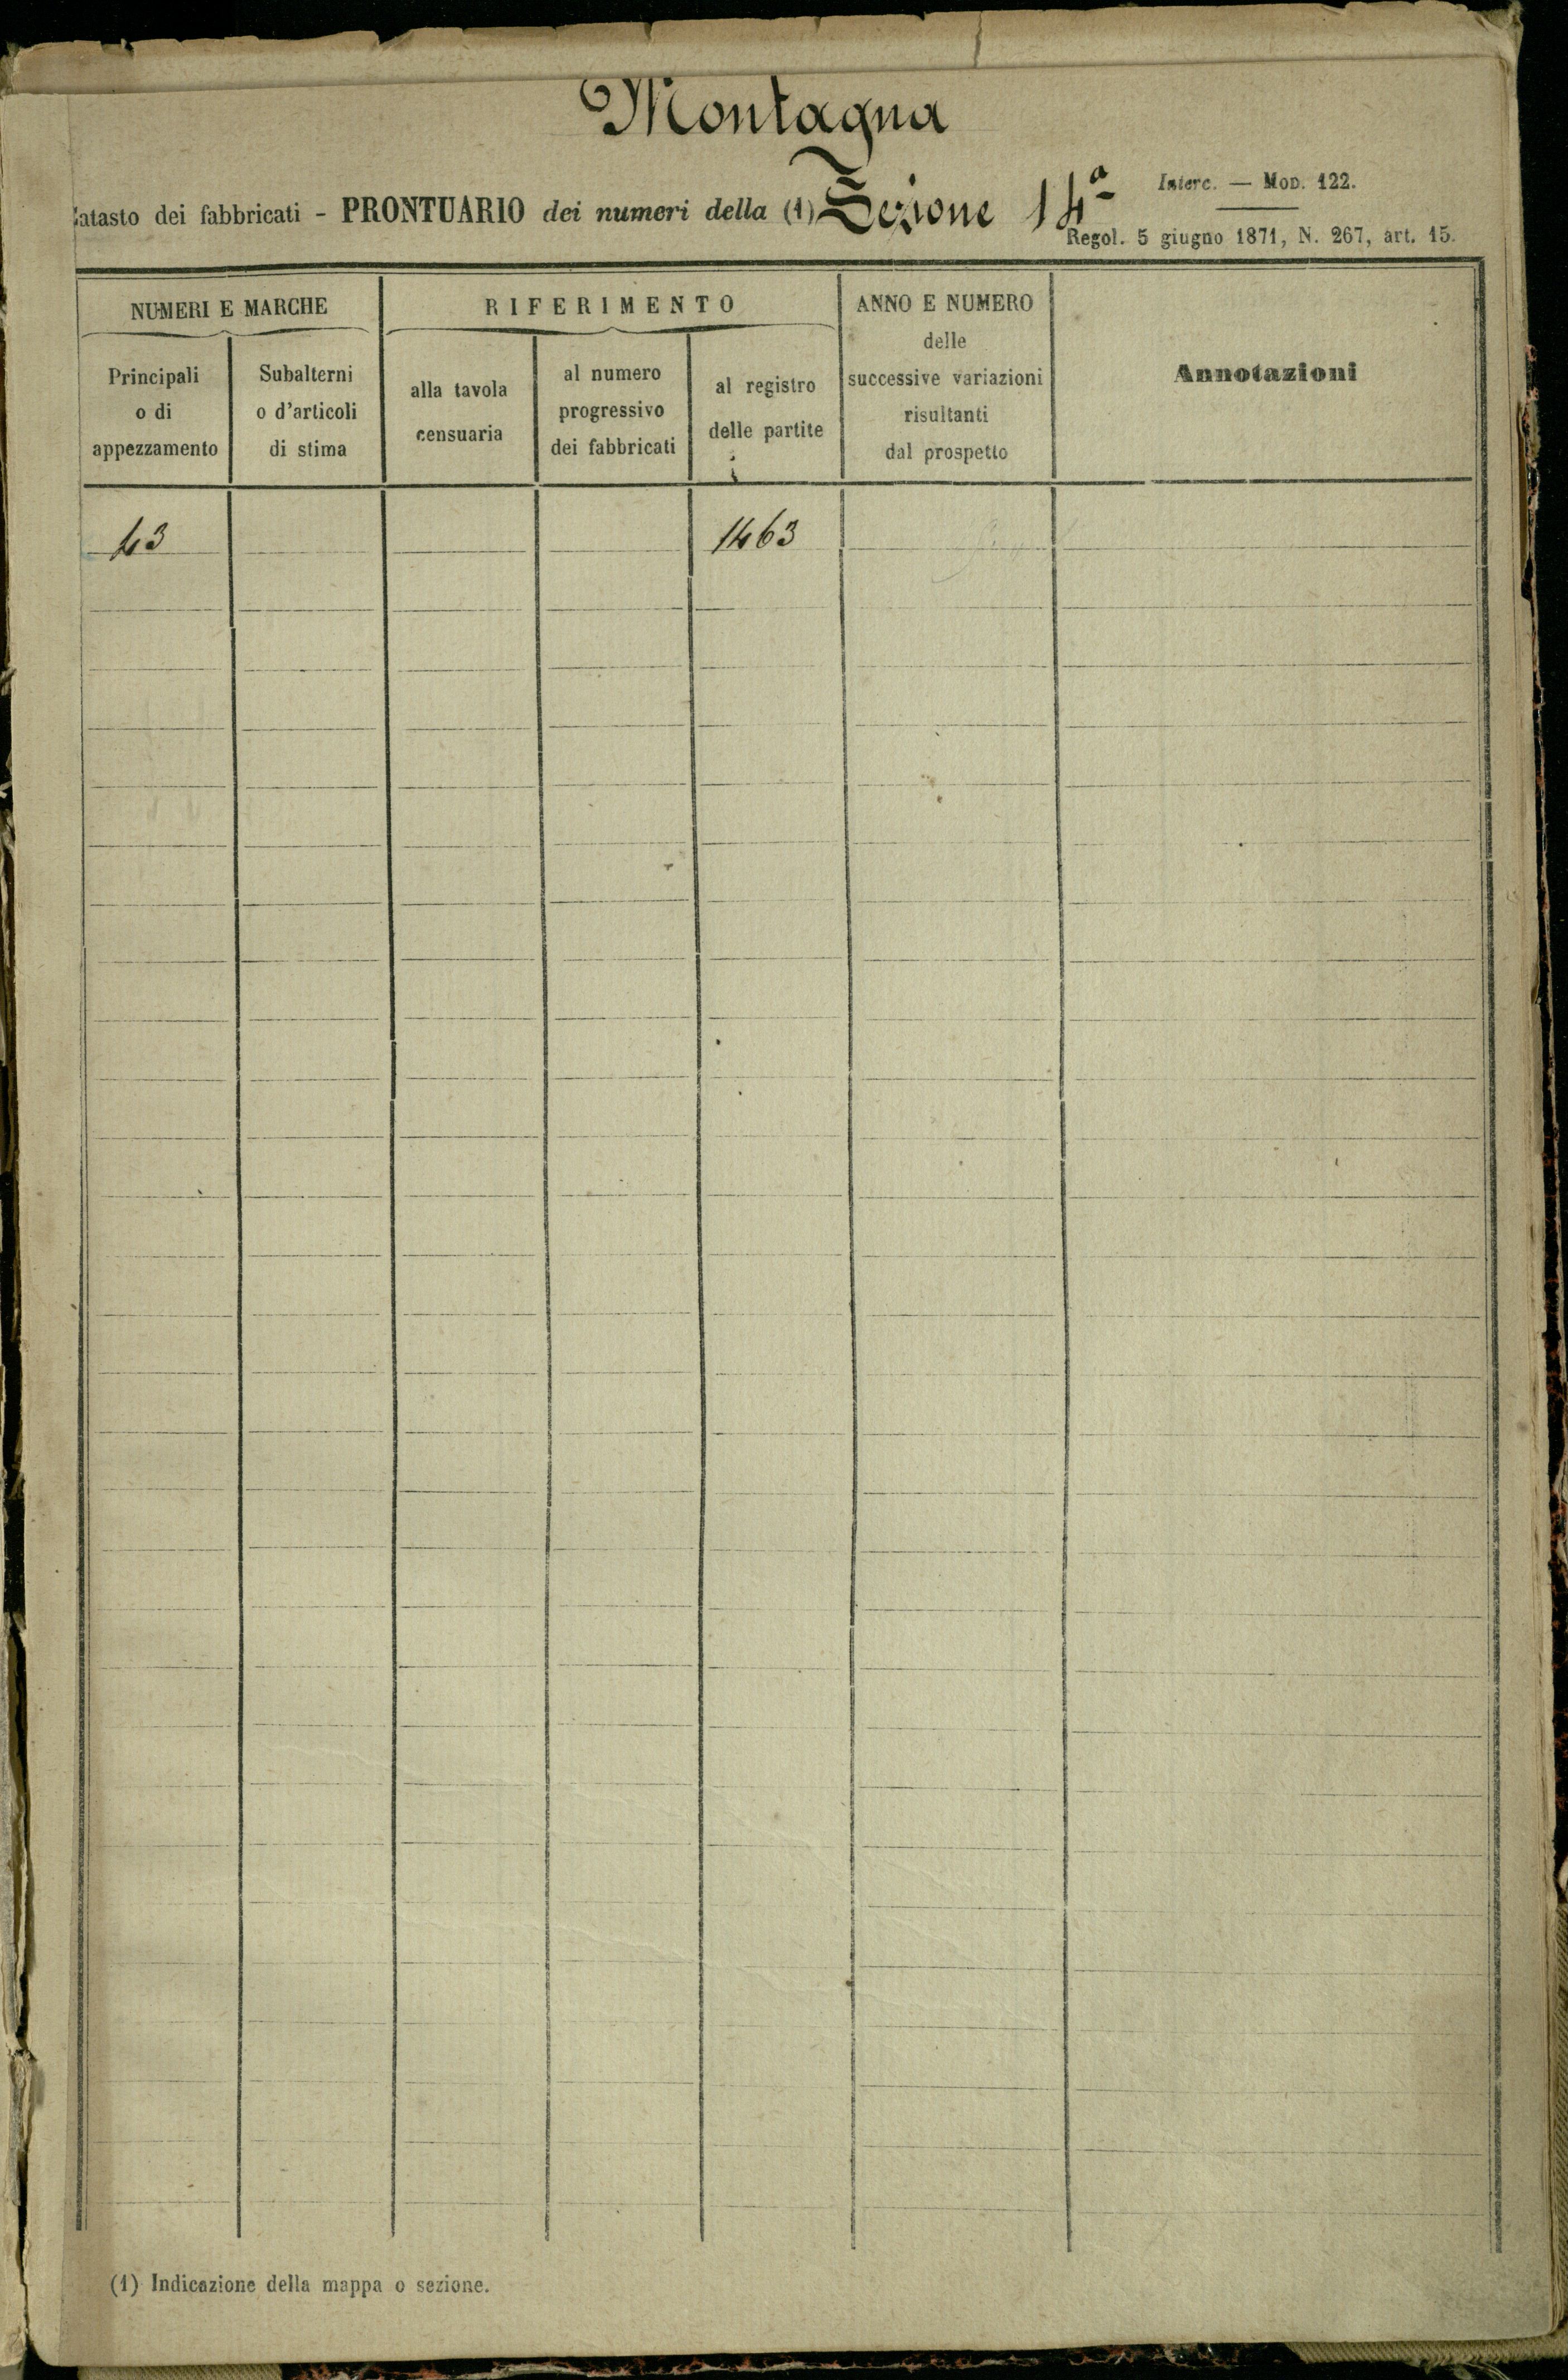 Montagna
Catasto dei fabbricati - PRONTUARIO dei numeri della (1) Sezione 14ª
Interc. — Mod. 122.
Regol. 5 giugno 1871, N. 267, art. 15.
NUMERI E MARCHE
RIFERIMENTO
ANNO E NUMERO
delle
successive variazioni
risultanti
dal prospetto
Annotazioni
Principali
o di
appezzamento
Subalterni
o d'articoli
di stima
alla tavola
censuaria
al numero
progressivo
dei fabbricati
al registro
delle partite
43 1463
(1) Indicazione della mappa o sezione.